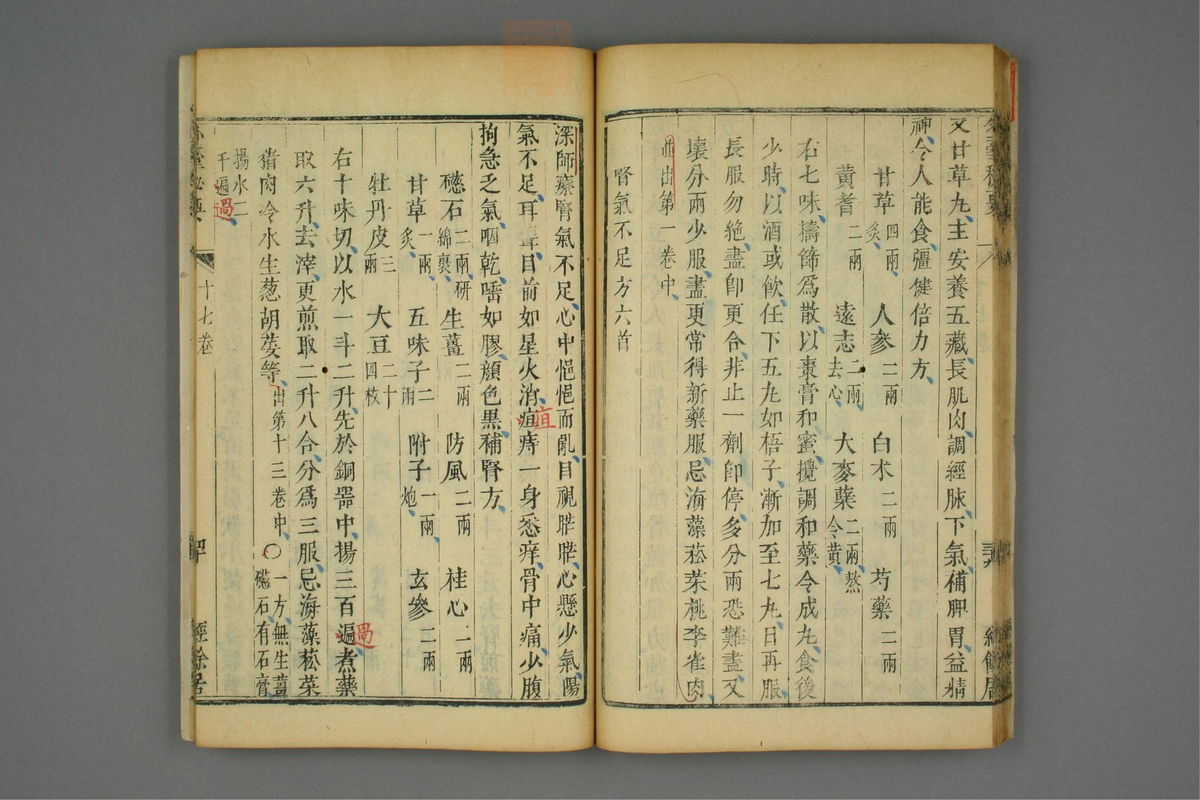 又甘草丸主安養五藏長肌肉調經脉下氣補脾胃益精
神令人能食彊健倍力方
甘草四兩炙 人參二兩 白朮二兩 芍藥二兩
黃耆二兩 遠志二兩去心 大麥蘗二兩熬令黃
右七味擣篩爲散以棗膏和蜜攪調和藥令成丸食後
少時以酒或飲任下五丸如梧子漸加至七丸日再服
長服勿絶盡卽更合非止一劑卽停多分兩恐難盡又
壞分兩少服盡更常得新藥服忌海藻菘菜桃李雀肉
並出第一卷中
腎氣不足方六首
深師療腎氣不足心中悒悒而亂目視䀮䀮心懸少氣陽
氣不足耳聾目前如星火消疽痔一身悉痒骨中痛少腹
疽
拘急乏氣咽乾唾如膠顔色黒補腎方
礠石二兩研綿裹 生薑二兩 防風二兩 桂心二兩
甘草一兩炙 五味子二兩 附子一兩炮 玄參二兩
牡丹皮三兩 大豆二十四枚
右十味切以水一斗二升先於銅器中揚三百遍煮藥
過
取六升去滓更煎取二升八合分爲三服忌海藻菘菜
猪肉冷水生葱胡荽等出第十三卷中〇一方無生薑礠石有石膏
揚水二千遍
過
十七卷
經餘居